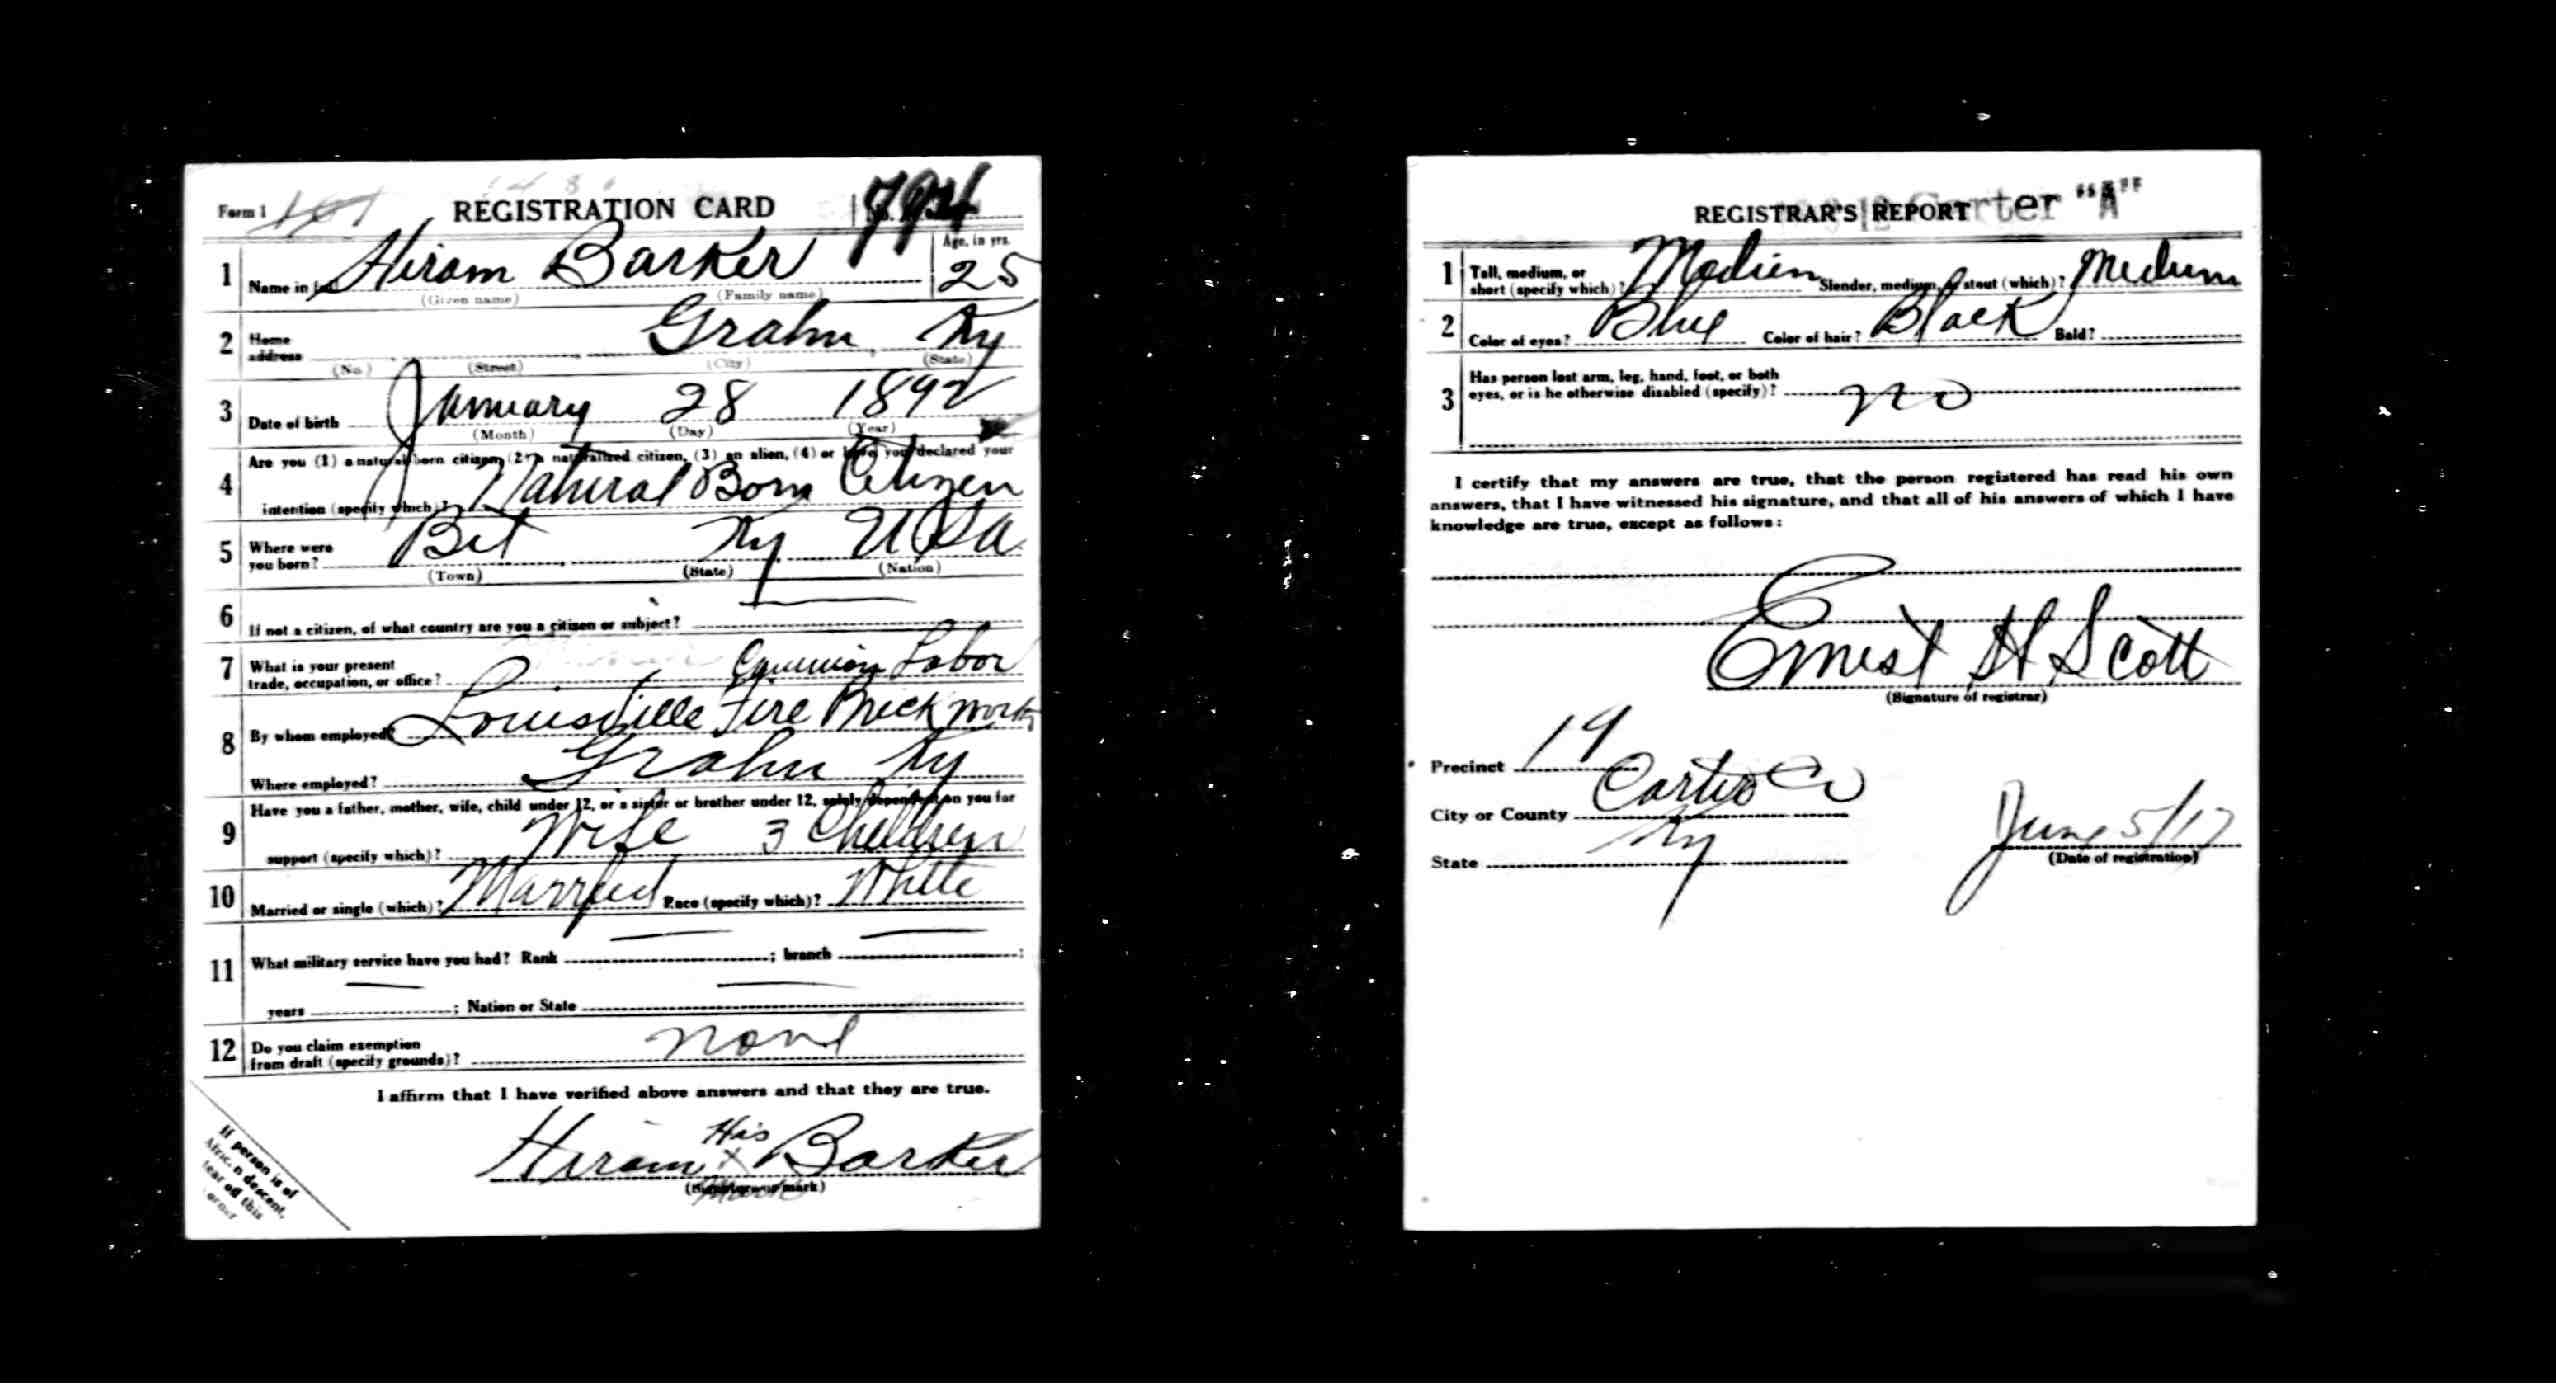 Form 1 101 REGISTRATION CARD No. 794
1 Name in full Hiram Barker Age, in yrs. 25
(Given name) (Family name)
2 Home address Grahn Ky
(No.) (Street) (City) (State)
3 Date of birth January 28 1892
(Month) (Day) (Year)
4 Are you (1) a natural born citizen, (2) a naturalized citizen, (3) an alien, (4) or have you declared your
intention (specify which)? Natural Born Citizen
5 Where were you born? Bet Ky USA
(Town) (State) (Nation)
6 If not a citizen, of what country are you a citizen or subject?
7 What is your present trade, occupation, or office? Common Labor
8 By whom employed? Louisville Fire Brick Works
Where employed? Grahn Ky
9 Have you a father, mother, wife, child under 12, or a sister or brother under 12, solely dependent on you for
support (specify which)? Wife 3 Children
10 Married or single (which)? Married Race (specify which)? White
11 What military service have you had? Rank ; branch ;
years ; Nation or State
12 Do you claim exemption from draft (specify grounds)? None
I affirm that I have verified above answers and that they are true.
His
Hiram X Barker
(Signature or mark)
Mark
If person is of
African descent,
tear off this
corner
REGISTRAR'S REPORT Carter "A"
1 Tall, medium, or short (specify which)? Medium Slender, medium, or stout (which)? Medium
2 Color of eyes? Blue Color of hair? Black Bald?
3 Has person lost arm, leg, hand, foot, or both
eyes, or is he otherwise disabled (specify)? no
I certify that my answers are true, that the person registered has read his own
answers, that I have witnessed his signature, and that all of his answers of which I have
knowledge are true, except as follows:
Ernest H Scott
(Signature of registrar)
Precinct 19
City or County Carter Co
State Ky
June 5/17
(Date of registration)